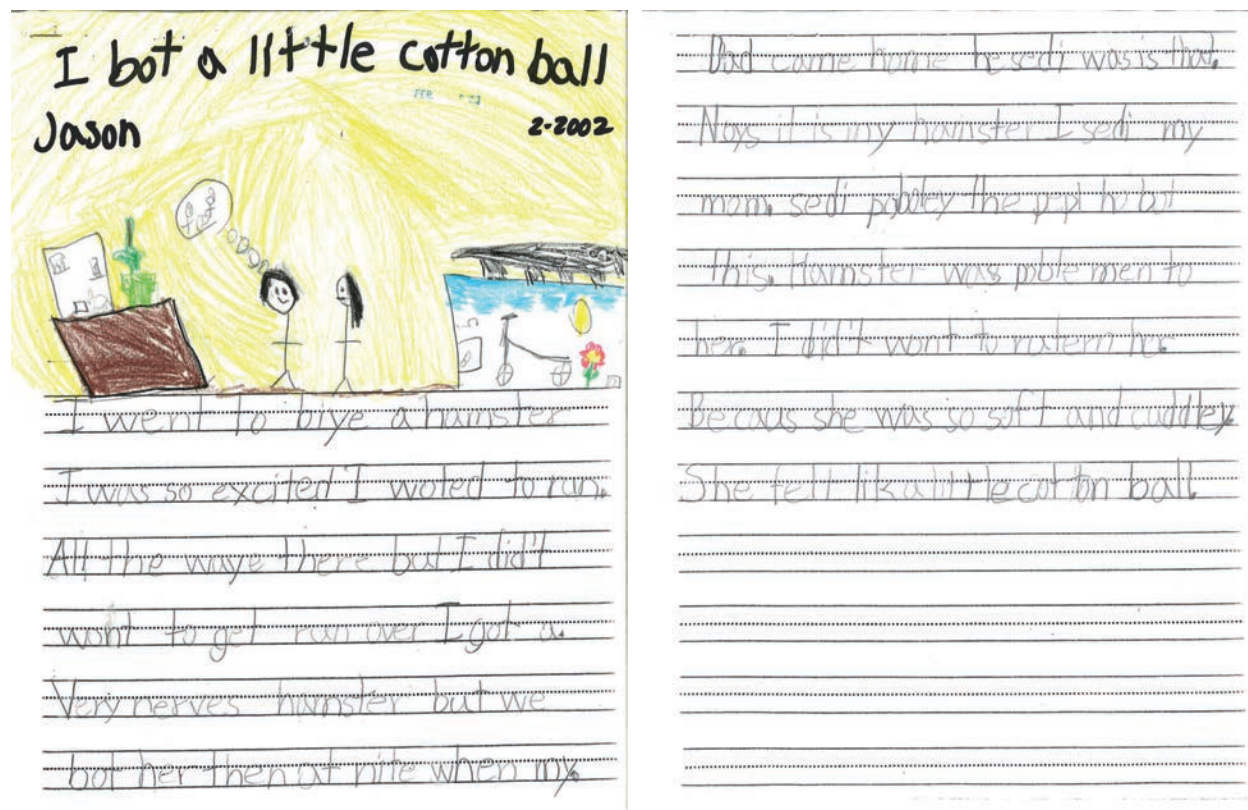 I bot a little cotton ball
Jason
2-2002
FER
I went to biye a hamster
I was so excited I woted to run.
All the waye there but I did't
wont to get run over I got a.
Very nerves hamster but we
bot her then at nite when my.
Dad came home he sedi was is that.
Nays it is my hamster I sedi my
mom. sedi pobley the pepl ho bot
this. Hamster was poble men to
her. I did't wont to rutern her.
Becaus she was so soft and cuddley.
She felt lik a little cotton ball.